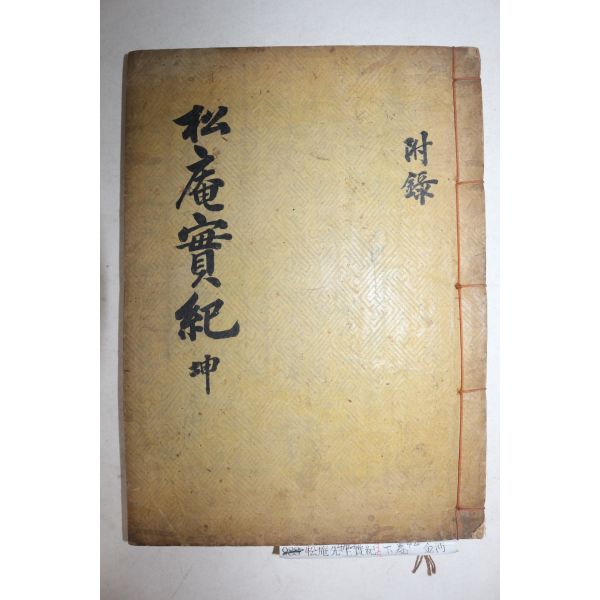 附錄
松庵實紀 坤
松庵先生實紀 下卷